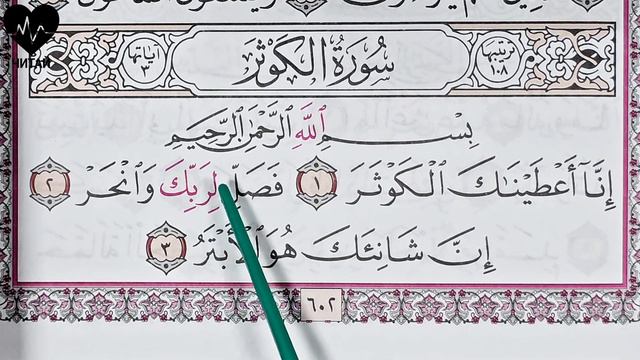 ЧИТАЙ
ترتيبها ١٠٨ سُورَةُ الكَوْثَرِ آياتها ٣
بِسْمِ ٱللَّهِ ٱلرَّحْمَٰنِ ٱلرَّحِيمِ
إِنَّآ أَعْطَيْنَٰكَ ٱلْكَوْثَرَ ١ فَصَلِّ لِرَبِّكَ وَٱنْحَرْ ٢
إِنَّ شَانِئَكَ هُوَ ٱلْأَبْتَرُ ٣
٦٠٢